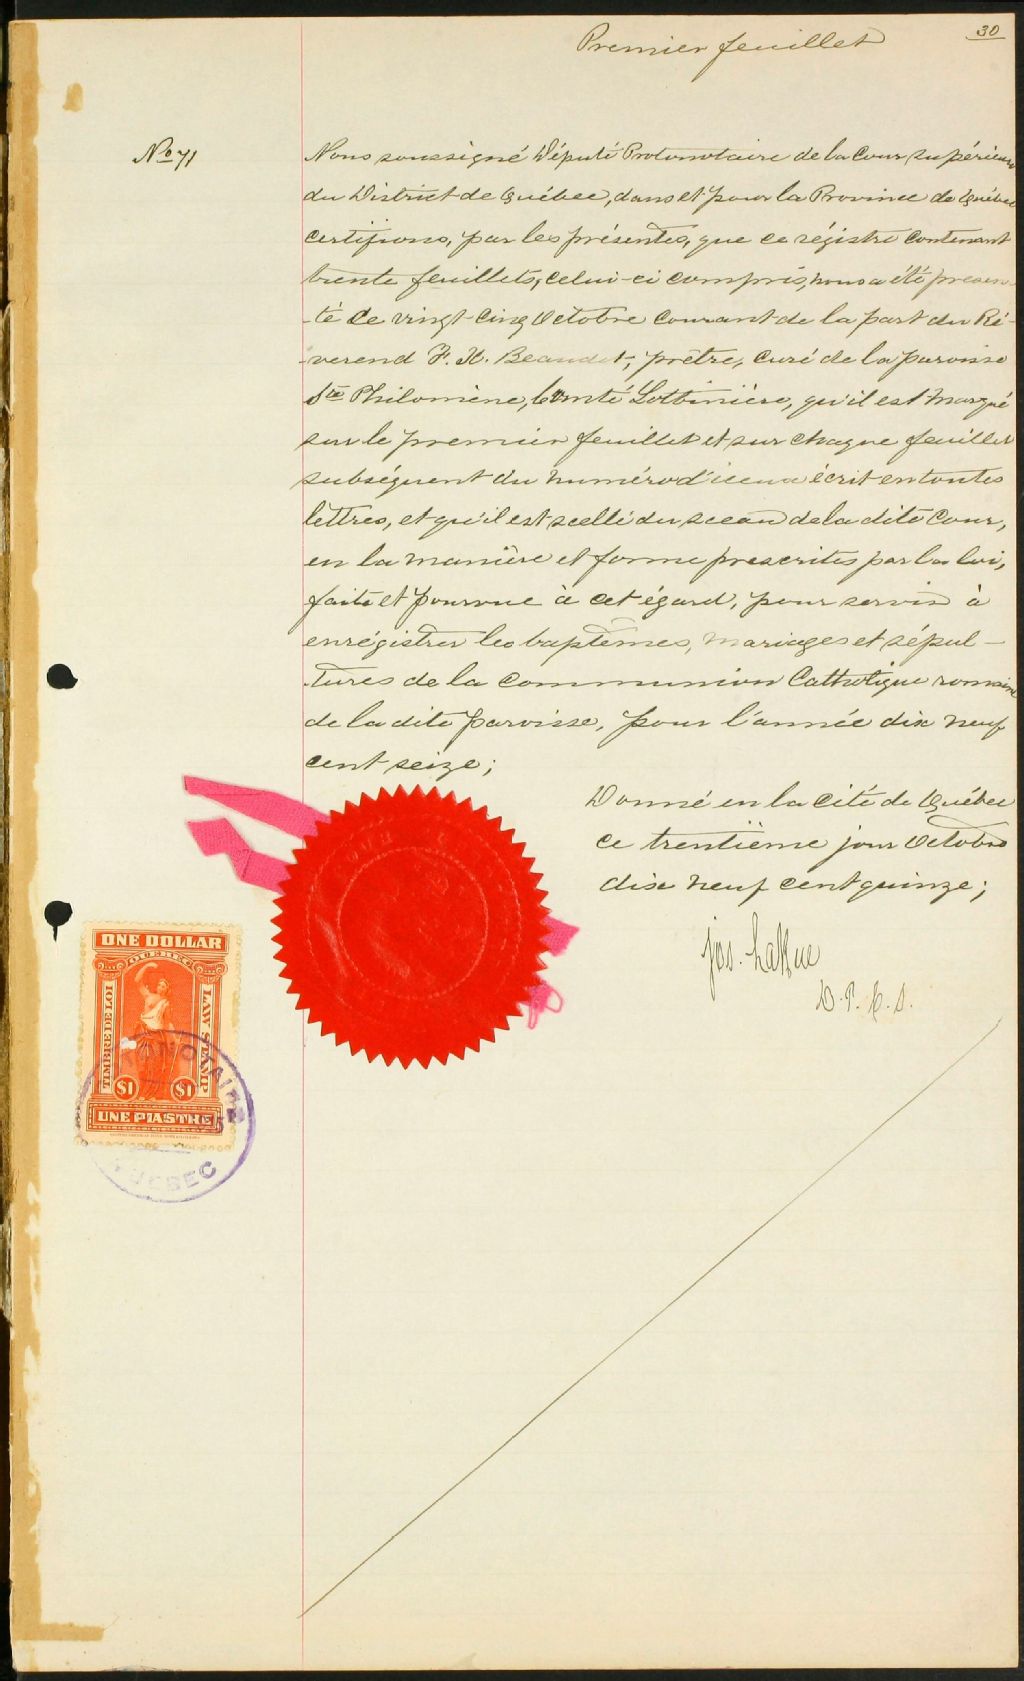 30
Premier feuillet
No 71
Nous soussigné Député Protonotaire de la Cour Supérieure
du District de Québec, dans et pour la Province de Québec
certifions, par les présentes, que ce régistre contenant
trente feuillets, celui-ci compris, nous a été présen-
-té ce vingt-cinq Octobre courant de la part du Ré-
-verend F. X. Beaudet, prêtre, curé de la paroisse
Ste Philomène, Comté Lotbinière, qu'il est marqué
sur le premier feuillet et sur chaque feuillet
subséquent du numéro d'iceux écrit en toutes
lettres, et qu'il est scellé du sceau de la dite Cour,
en la manière et forme prescrites par la loi,
faite et pourvue à cet égard, pour servir à
enrégistrer les baptêmes, mariages et sépul-
-tures de la communion Catholique romaine
de la dite paroisse, pour l'année dix neuf
cent seize;
Donné en la cité de Québec
ce trentième jour Octobre
dix neuf cent quinze;
Jos. LaRue
D. P. C. S.
COUR
ONE DOLLAR
QUEBEC
TIMBRE DE LOI
LAW STAMP
$1 $1
UNE PIASTRE
QUEBEC